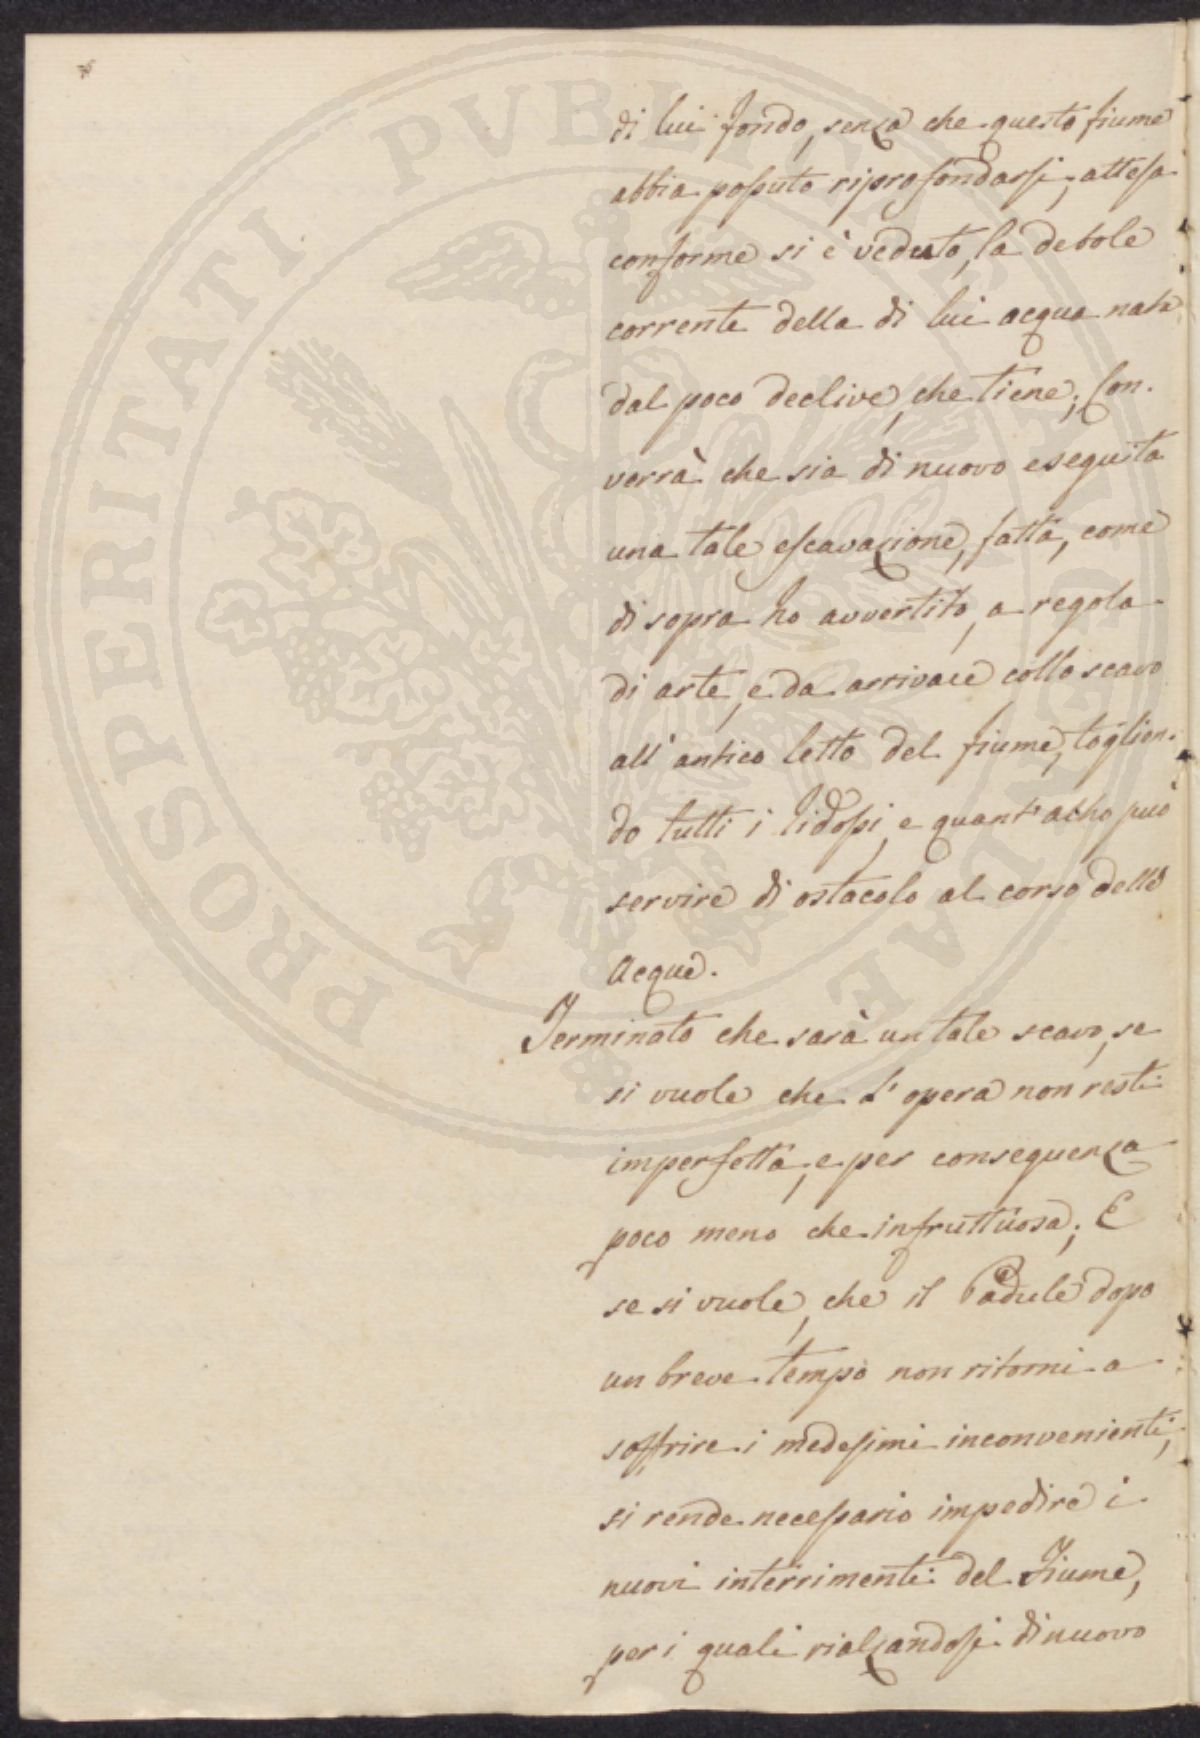 di lui fondo, senza che questo fiume
abbia possuto riprofondarsi, attesa
conforme si è veduto, la debole
corrente della di lui acqua nata
dal poco declive, che tiene; Con-
verrà che sia di nuovo eseguita
una tale escavazione, fatta, come
di sopra ho avvertito, a regola
di arte, e da arrivare collo scavo
all' antico letto del fiume, toglien-
do tutti i lidossi, e quant' altro può
servire di ostacolo al corso delle
Acque.
Terminato che sarà un tale scavo, se
si vuole che l' opera non resti
imperfetta, e per conseguenza
poco meno che infruttuosa; E
se si vuole, che il Padule dopo
un breve tempo non ritorni a
soffrire i medesimi inconvenienti;
si rende necessario impedire i
nuovi interrimenti del Fiume,
per i quali rialzandosi di nuovo
PROSPERITATI PVBLICAE AVGENDAE